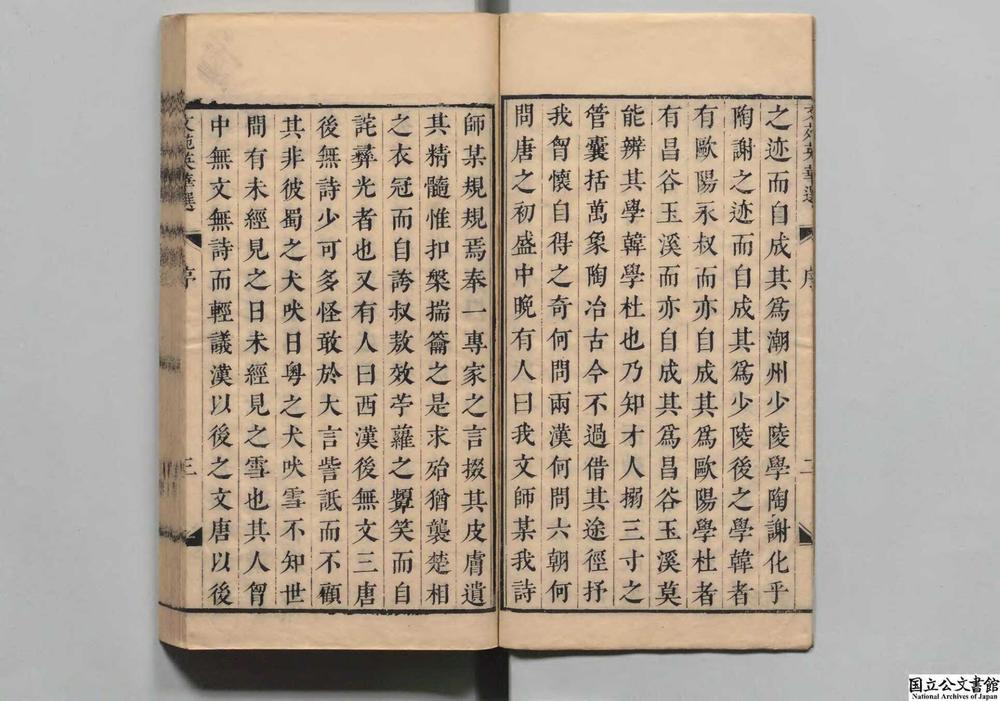 文苑英華選
序
二
之迹而自成其爲潮州少陵學陶謝化乎
陶謝之迹而自成其爲少陵後之學韓者
有歐陽永叔而亦自成其爲歐陽學杜者
有昌谷玉溪而亦自成其爲昌谷玉溪莫
能辨其學韓學杜也乃知才人搦三寸之
管囊括萬象陶冶古今不過借其途徑抒
我胷懷自得之奇何問兩漢何問六朝何
問唐之初盛中晚有人曰我文師某我詩
師某規規焉奉一專家之言掇其皮膚遺
其精髓惟扣槃揣籥之是求殆猶襲楚相
之衣冠而自誇叔敖效苧蘿之顰笑而自
詫彝光者也又有人曰西漢後無文三唐
後無詩少可多怪敢於大言訾詆而不顧
其非彼蜀之犬吠日粤之犬吠雪不知世
間有未經見之日未經見之雪也其人胷
中無文無詩而輕議漢以後之文唐以後
文苑英華選
序
三
国立公文書館
National Archives of Japan